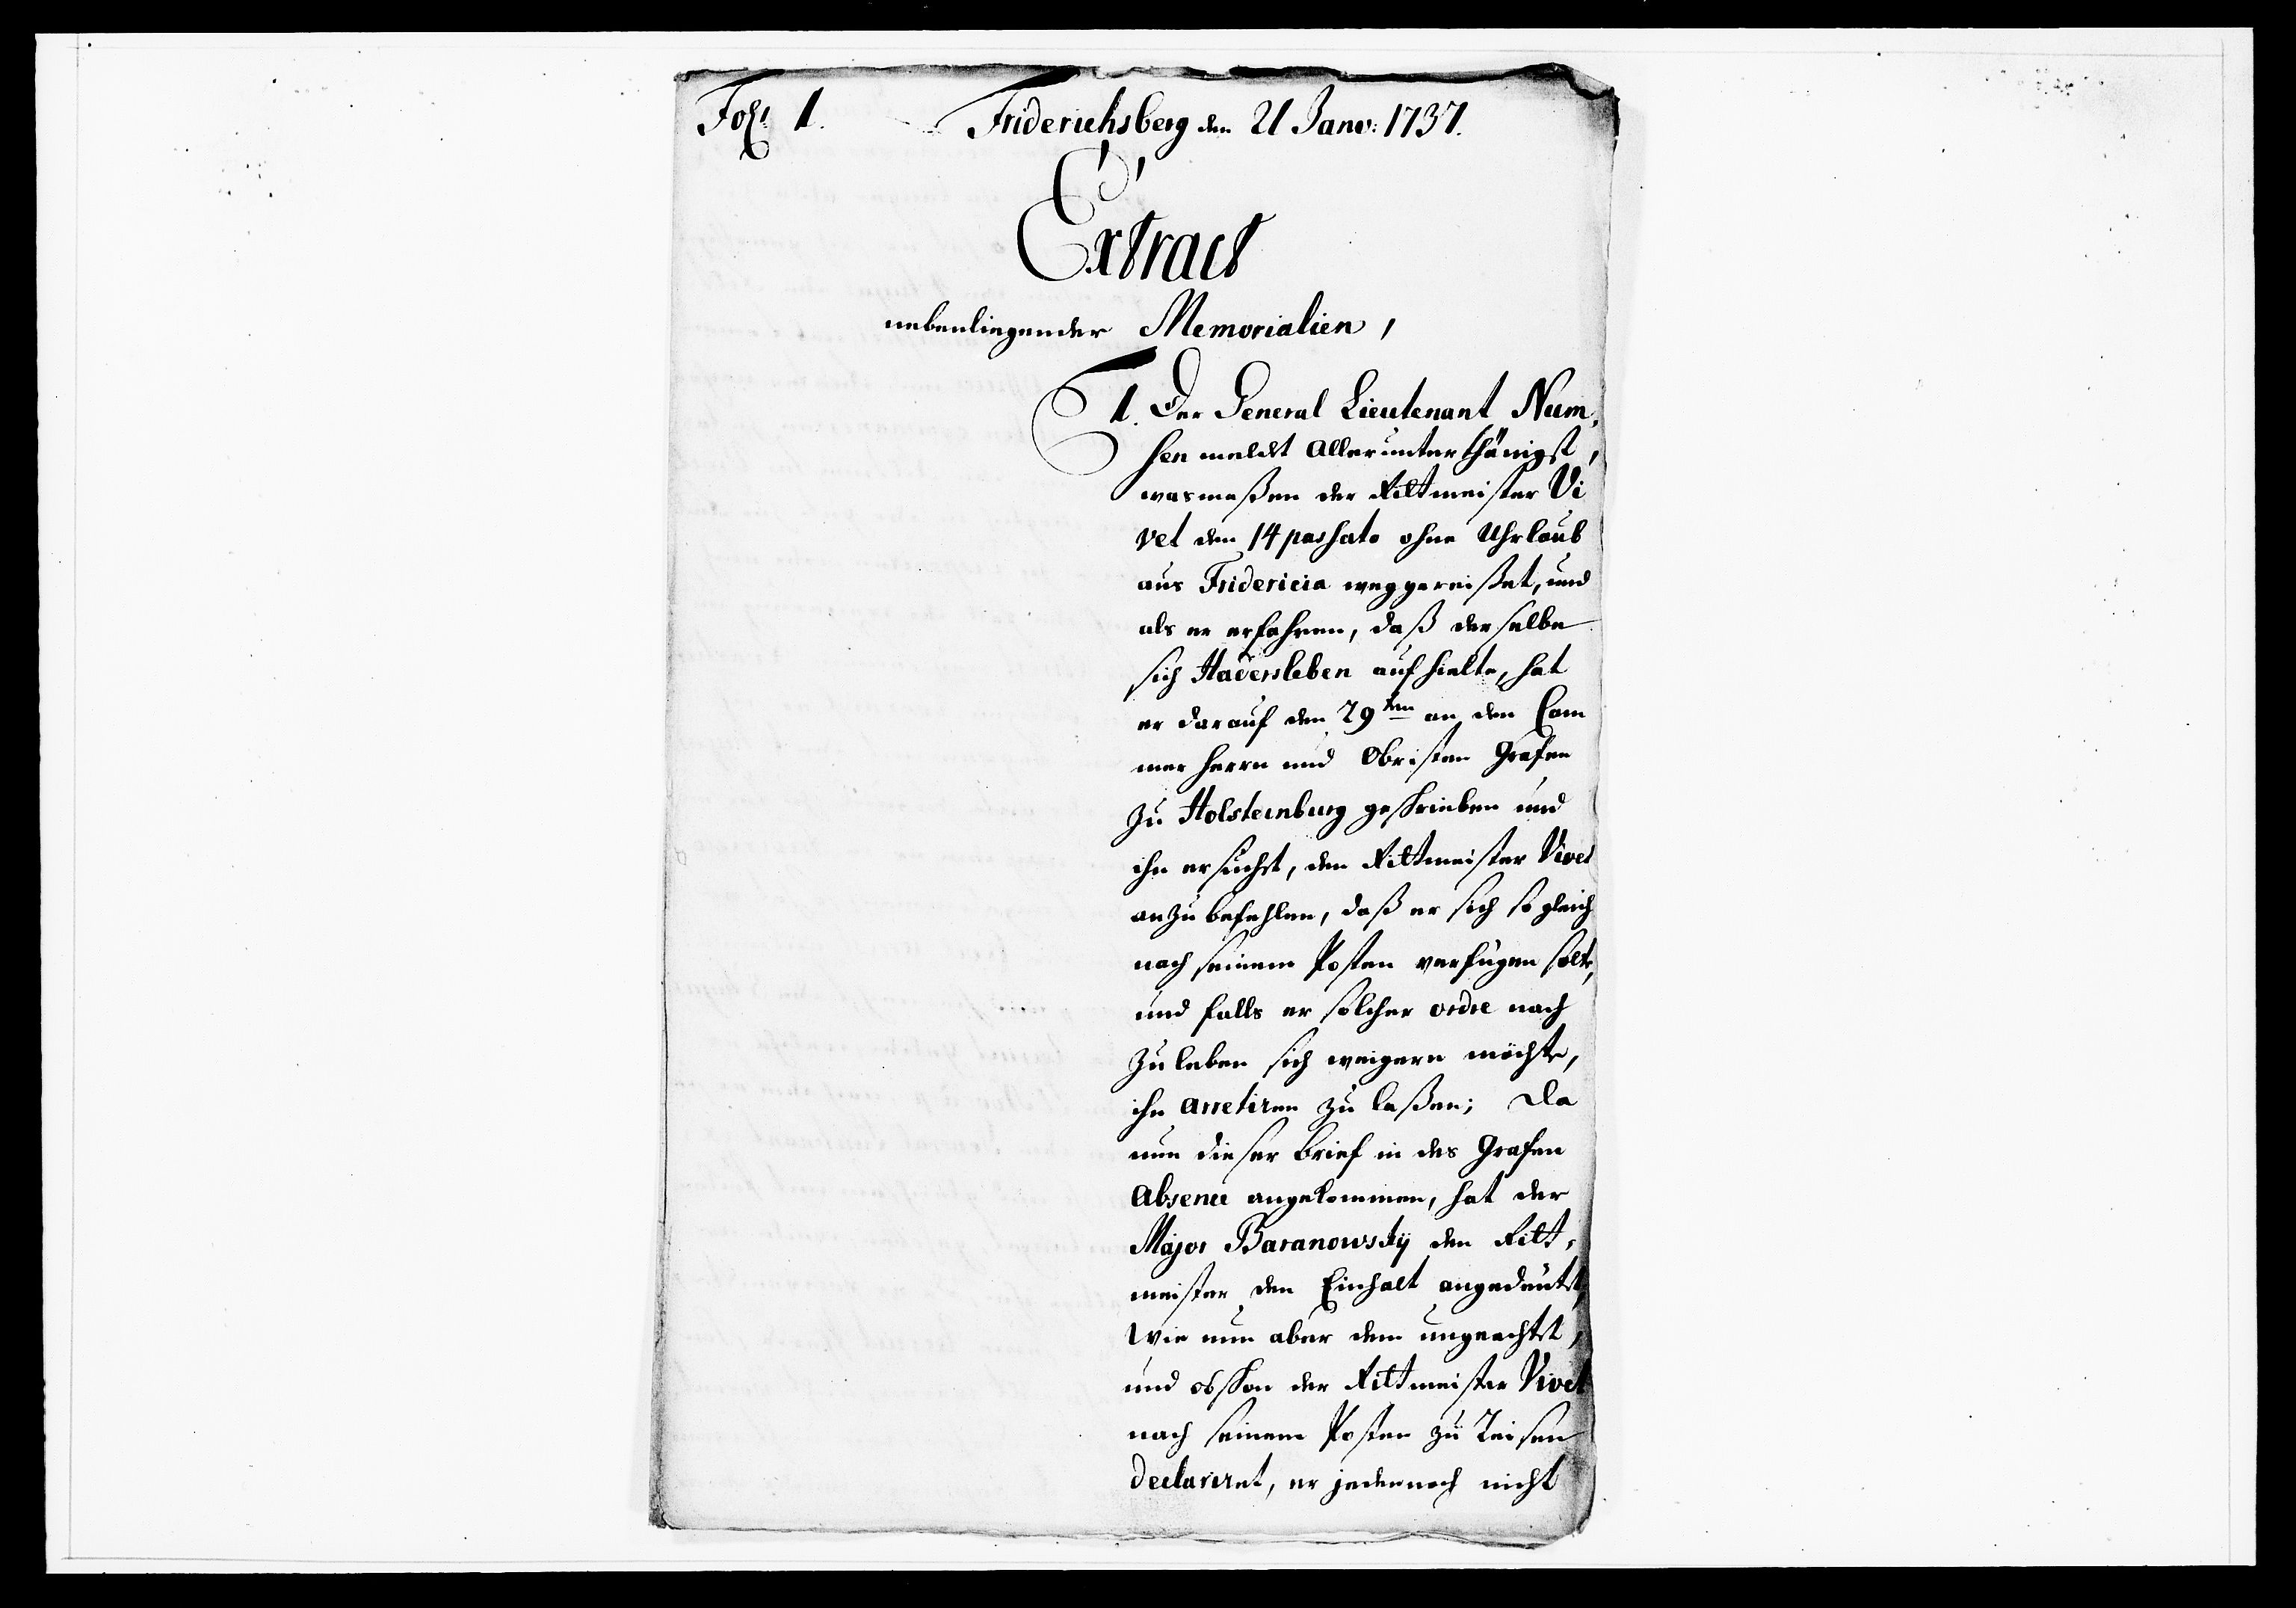 Fol: 1. Friderichsberg den 21 Janv: 1737.
Extract
nebenliegender Memorialien,
1. Der General Lieutenant Num,
sen meldet allerunterthänigst,
wasmaßen der Rittmeister Vi
vet den 14 passato ohne Uhrlaub
aus Fridericia weggereißet, und
als er erfahren, daß derselbe
sich Hadersleben aufhielte, hat
er darauf den 29ten an den Cam
mer Herrn und Obristen Grafen
zu Holsteinburg geschrieben und
ihn ersucht, den Rittmeister Vivet
anzubefehlen, daß er sich so gleich
nach seinem Posten verfügen solte,
und falls er solcher ordre nach
zuleben sich weigern möchte,
ihn arretiren zu laßen; Da
nun dieser Brief in des Grafen
Absence angekommen, hat der
Major Baranowsky den Ritt,
meister den Einhalt angedeutet,
Wie nun aber dem ungeachtet,
und obschon der Rittmeister Vivet
nach seinem Posten zu Reisen
declariret, er jedennoch nicht